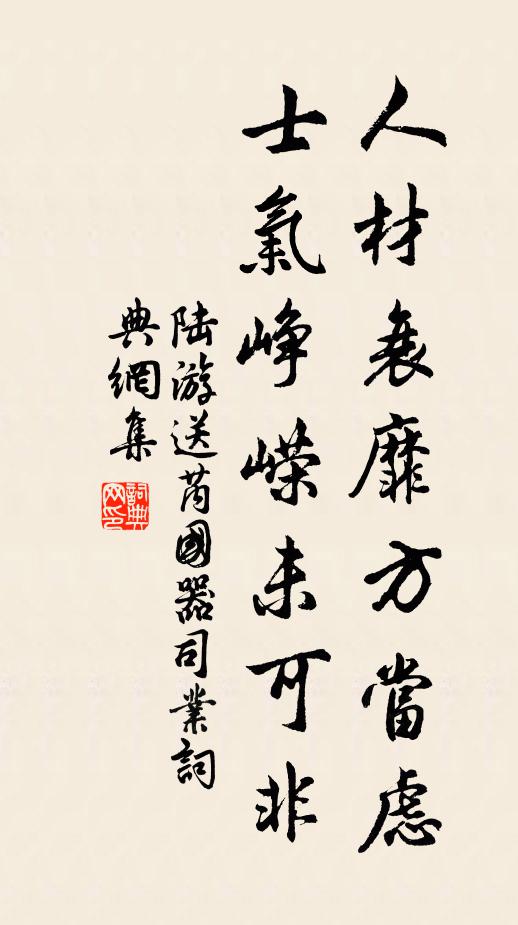 人材衰靡方當慮
士氣崢嶸未可非
陆游送芮國器司業詞
典網集
詞典
网印